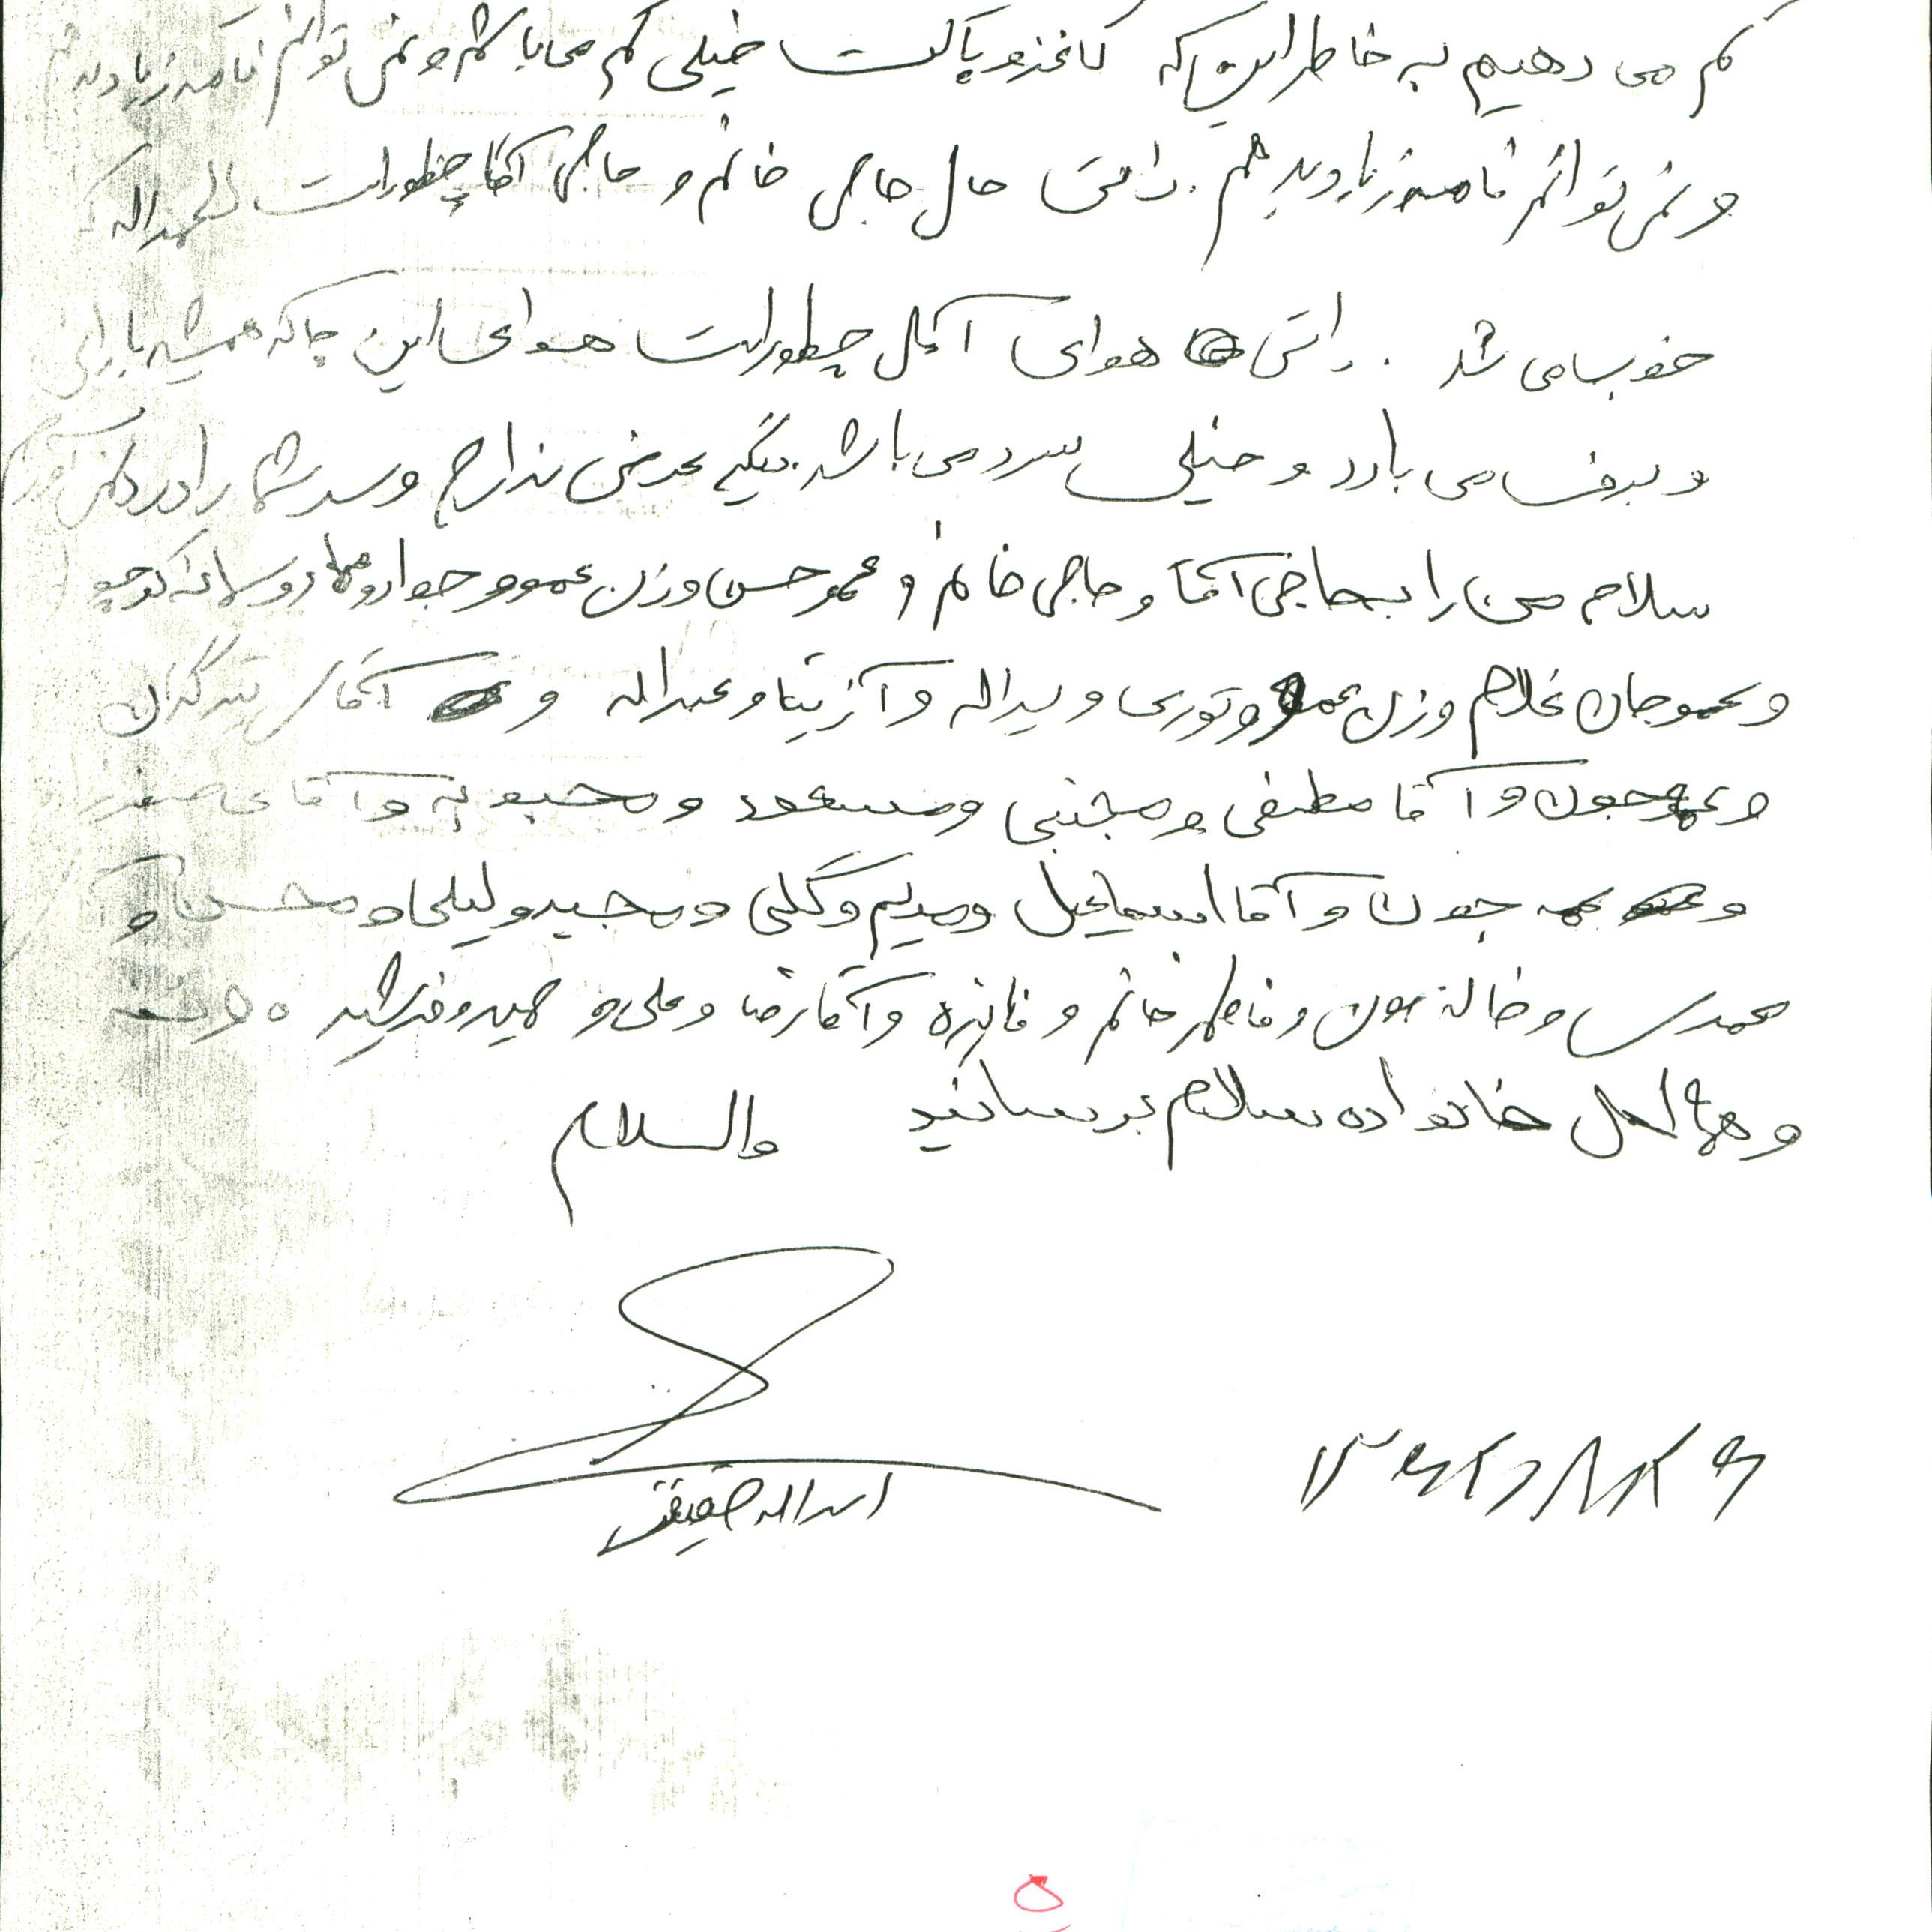 کم می دهیم به خاطر این که کاغذ و پاکت خیلی کم می باشد و نمی توانم نامه زیاد بدهم
و نمی توانم نامه زیاد بدهم . راستی حال حاجی خانم و حاجی آقا چطور است الحمداله که
خوب می شد . راستی هوای آمل چطور است هوای این جا که همیشه بارانی
و برف می بارد و خیلی سرد می باشد . دیگه عرضی ندارم و سر شما را درد نمی آورم
سلام من را به حاجی آقا و حاجی خانم و عمو حسن و زن عمو و جواد و و سمانه کوچو
و عمو جان غلام و زن عمو و توری و یداله و آزیتا و عبداله و آقای
و عمه جون و آقا مطفی و مجتبی و مسعود و محبوبه و آقای
و عمه جون و آقا اسماعیل و مریم و گلی و مجید و لیلی و محسن و
محمد و خاله جون و فاطمه خانم و فائزه و آقا رضا و علی و حمید و فرشید
و همه اهل خانواده سلام برسانید والسلام
اسداله حقیقی